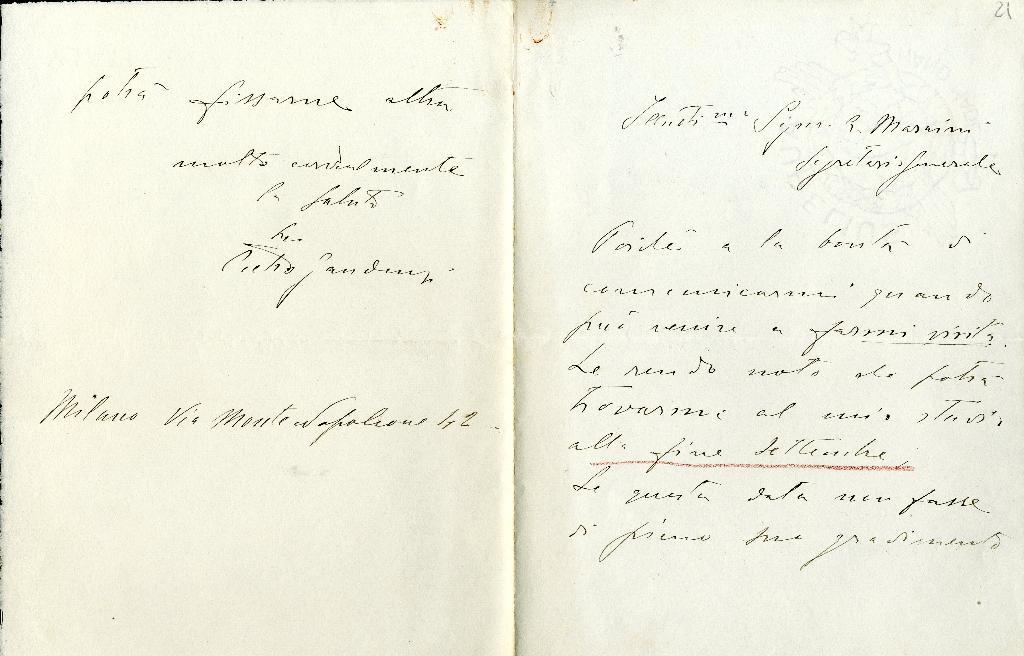 21
Illustmo Signor A. Maraini
Segretario Generale
Poiché a la bontà di
comunicarmi quando
può venire a farmi visita.
Le rendo noto che potrà
trovarmi al mio studio
alla fine settembre,
Se questa data non fosse
di pieno suo gradimento
potrà fissarne altra
molto cordialmente
la saluto
Suo
Pietro Gaudenzi
Milano Via Monte Napoleone 42